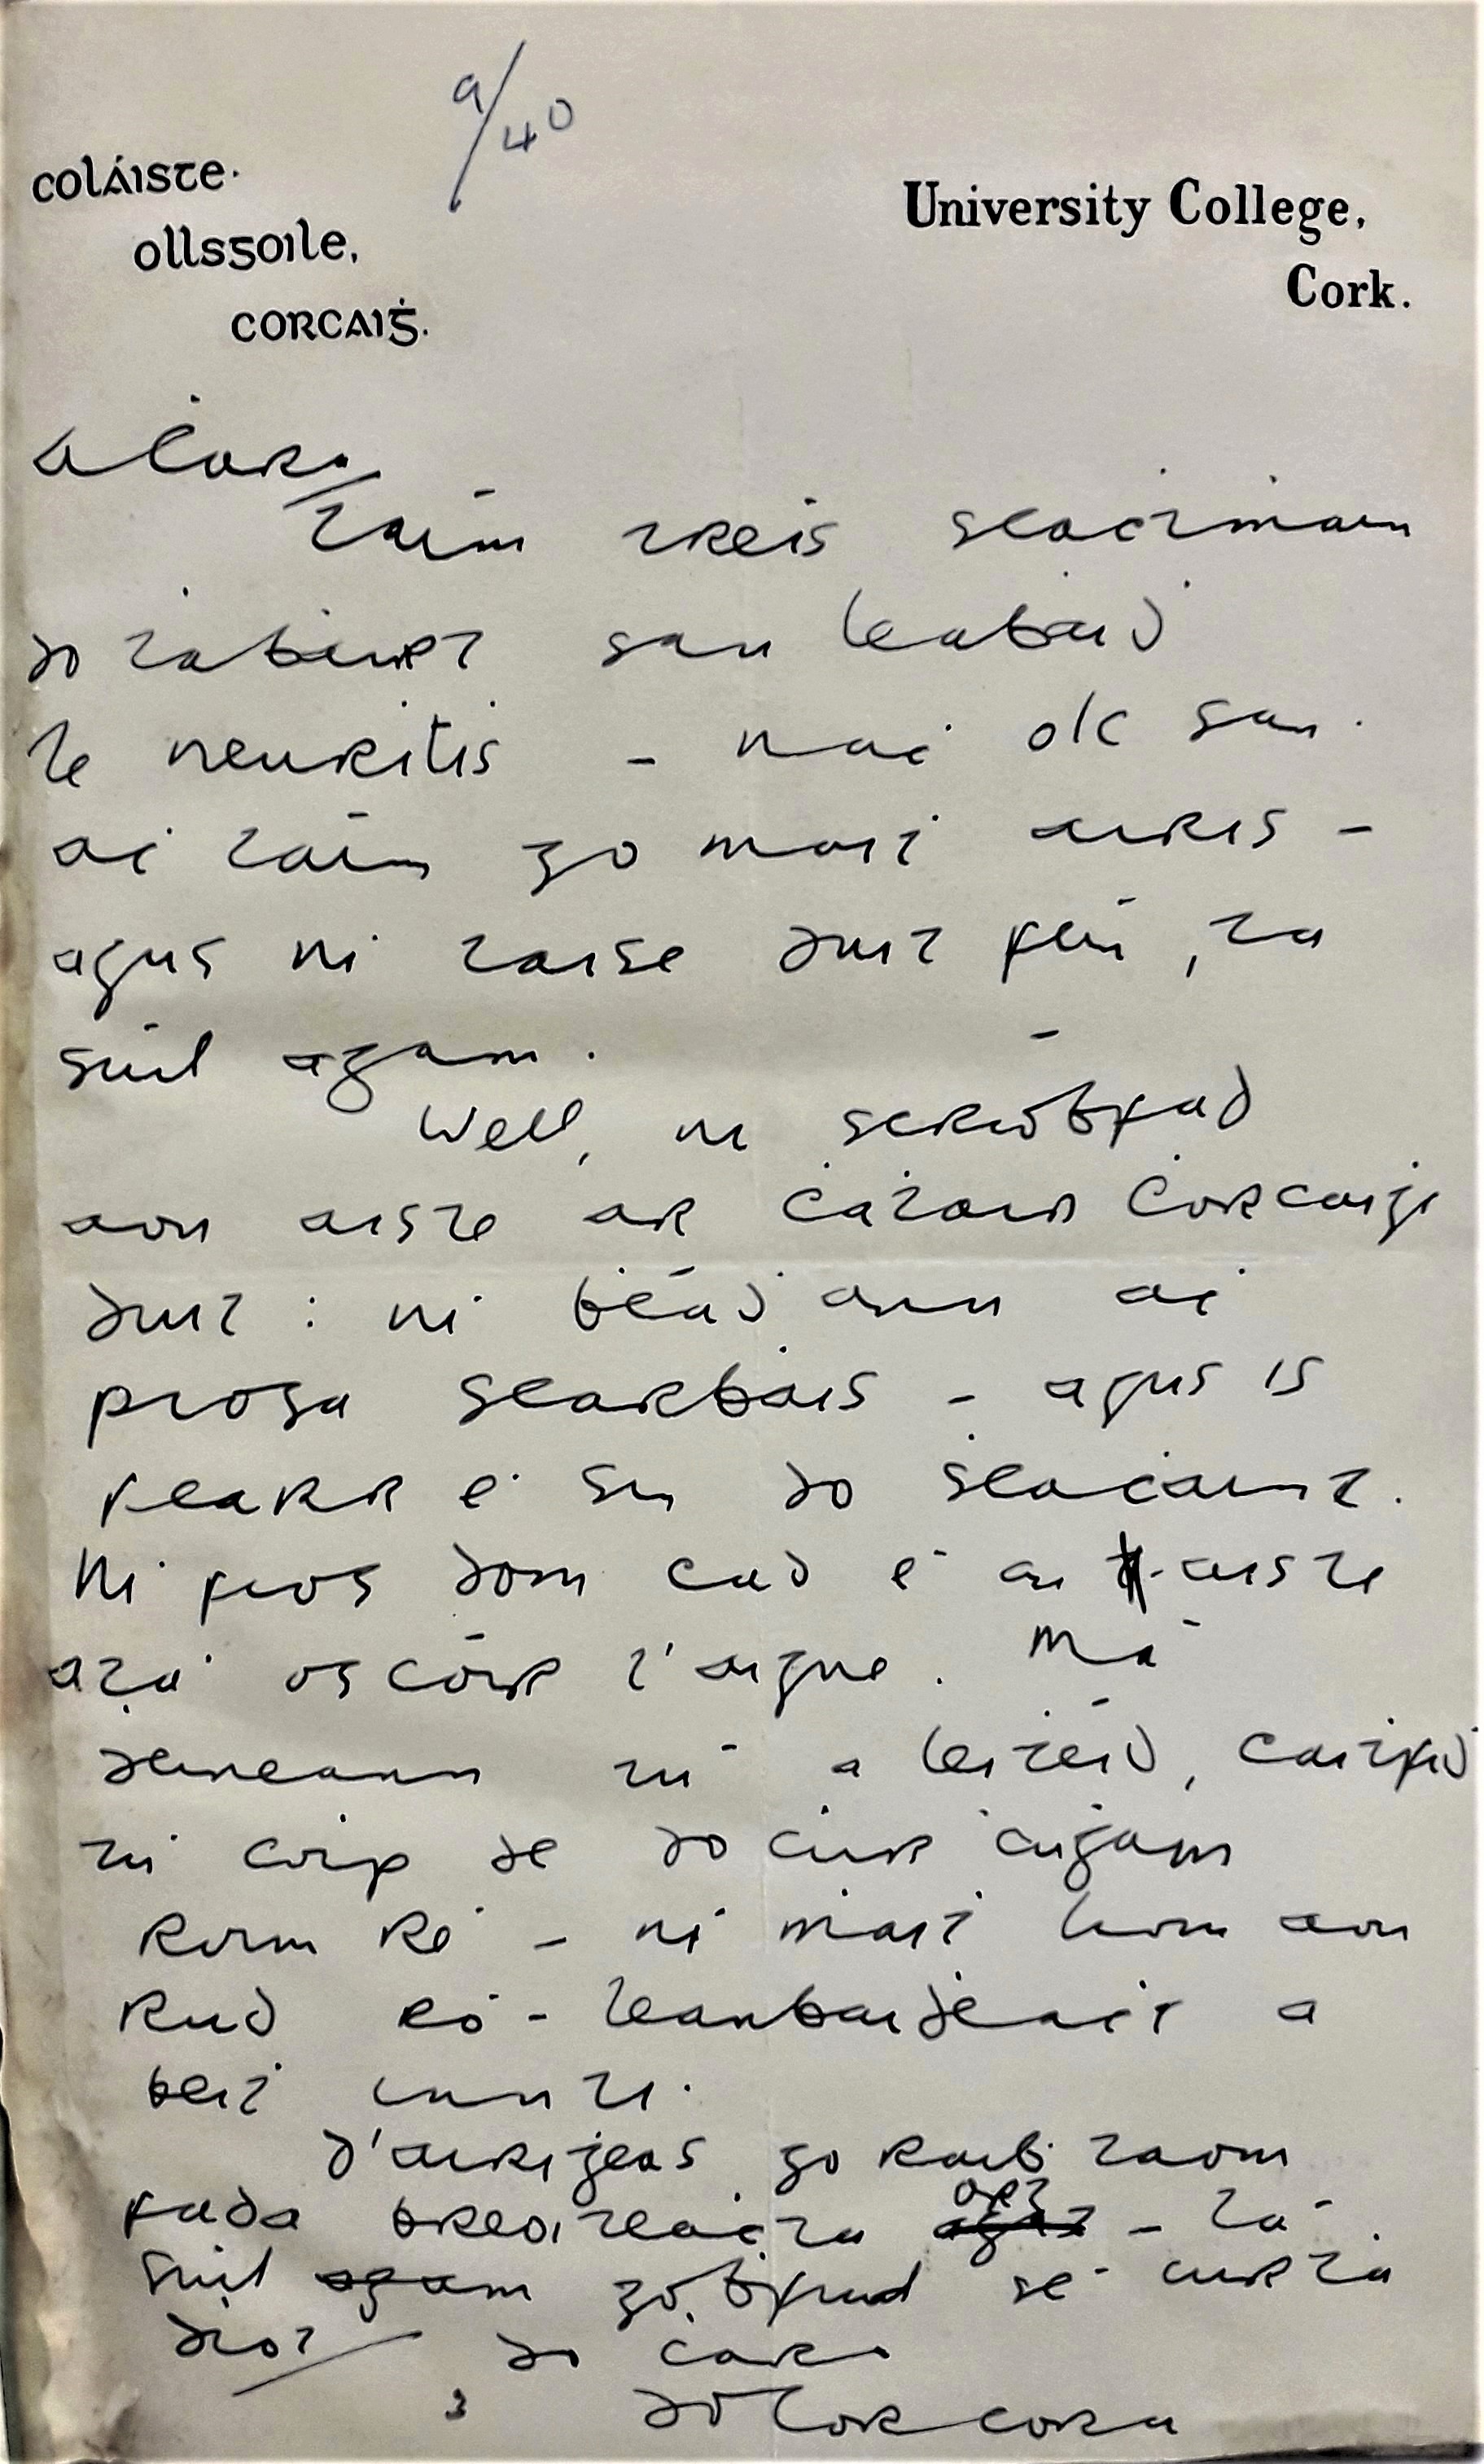 9/40
Coláiste
Ollsgoile,
Corcaiġ.
University College,
Cork.
A Ċara
Táim tréis seaċtṁain
do ṫaḃairt san leabaiḋ
le neuritis - naċ olc san.
aċ táim go maiṫ airís -
agus ní taise duit féin, tá
súil agam.
Well, ní scríoḃfad
aon aiste ar ċaṫair Ċorcaiġe
duit: ní ḃéaḋ ann aċ
prósa searḃais - agus is
fearr é sin do ṡeaċaint.
Ní fios dom cad é an aiste
atá os cóir t'aigne. Má
ḋeineann tú a leiṫéid, caiṫfiḋ
tú cóip de do ċur ċugam
roim ré - ní ṁaiṫ liom aon
rud ró-leanbaiḋeaċt a
ḃeiṫ innti.
D'airiġeas go raiḃ taom
fada breoiteaċta ort - tá
súil agam go ḃfuil sé curṫa
díot
Do ċara
D Ó Corcora